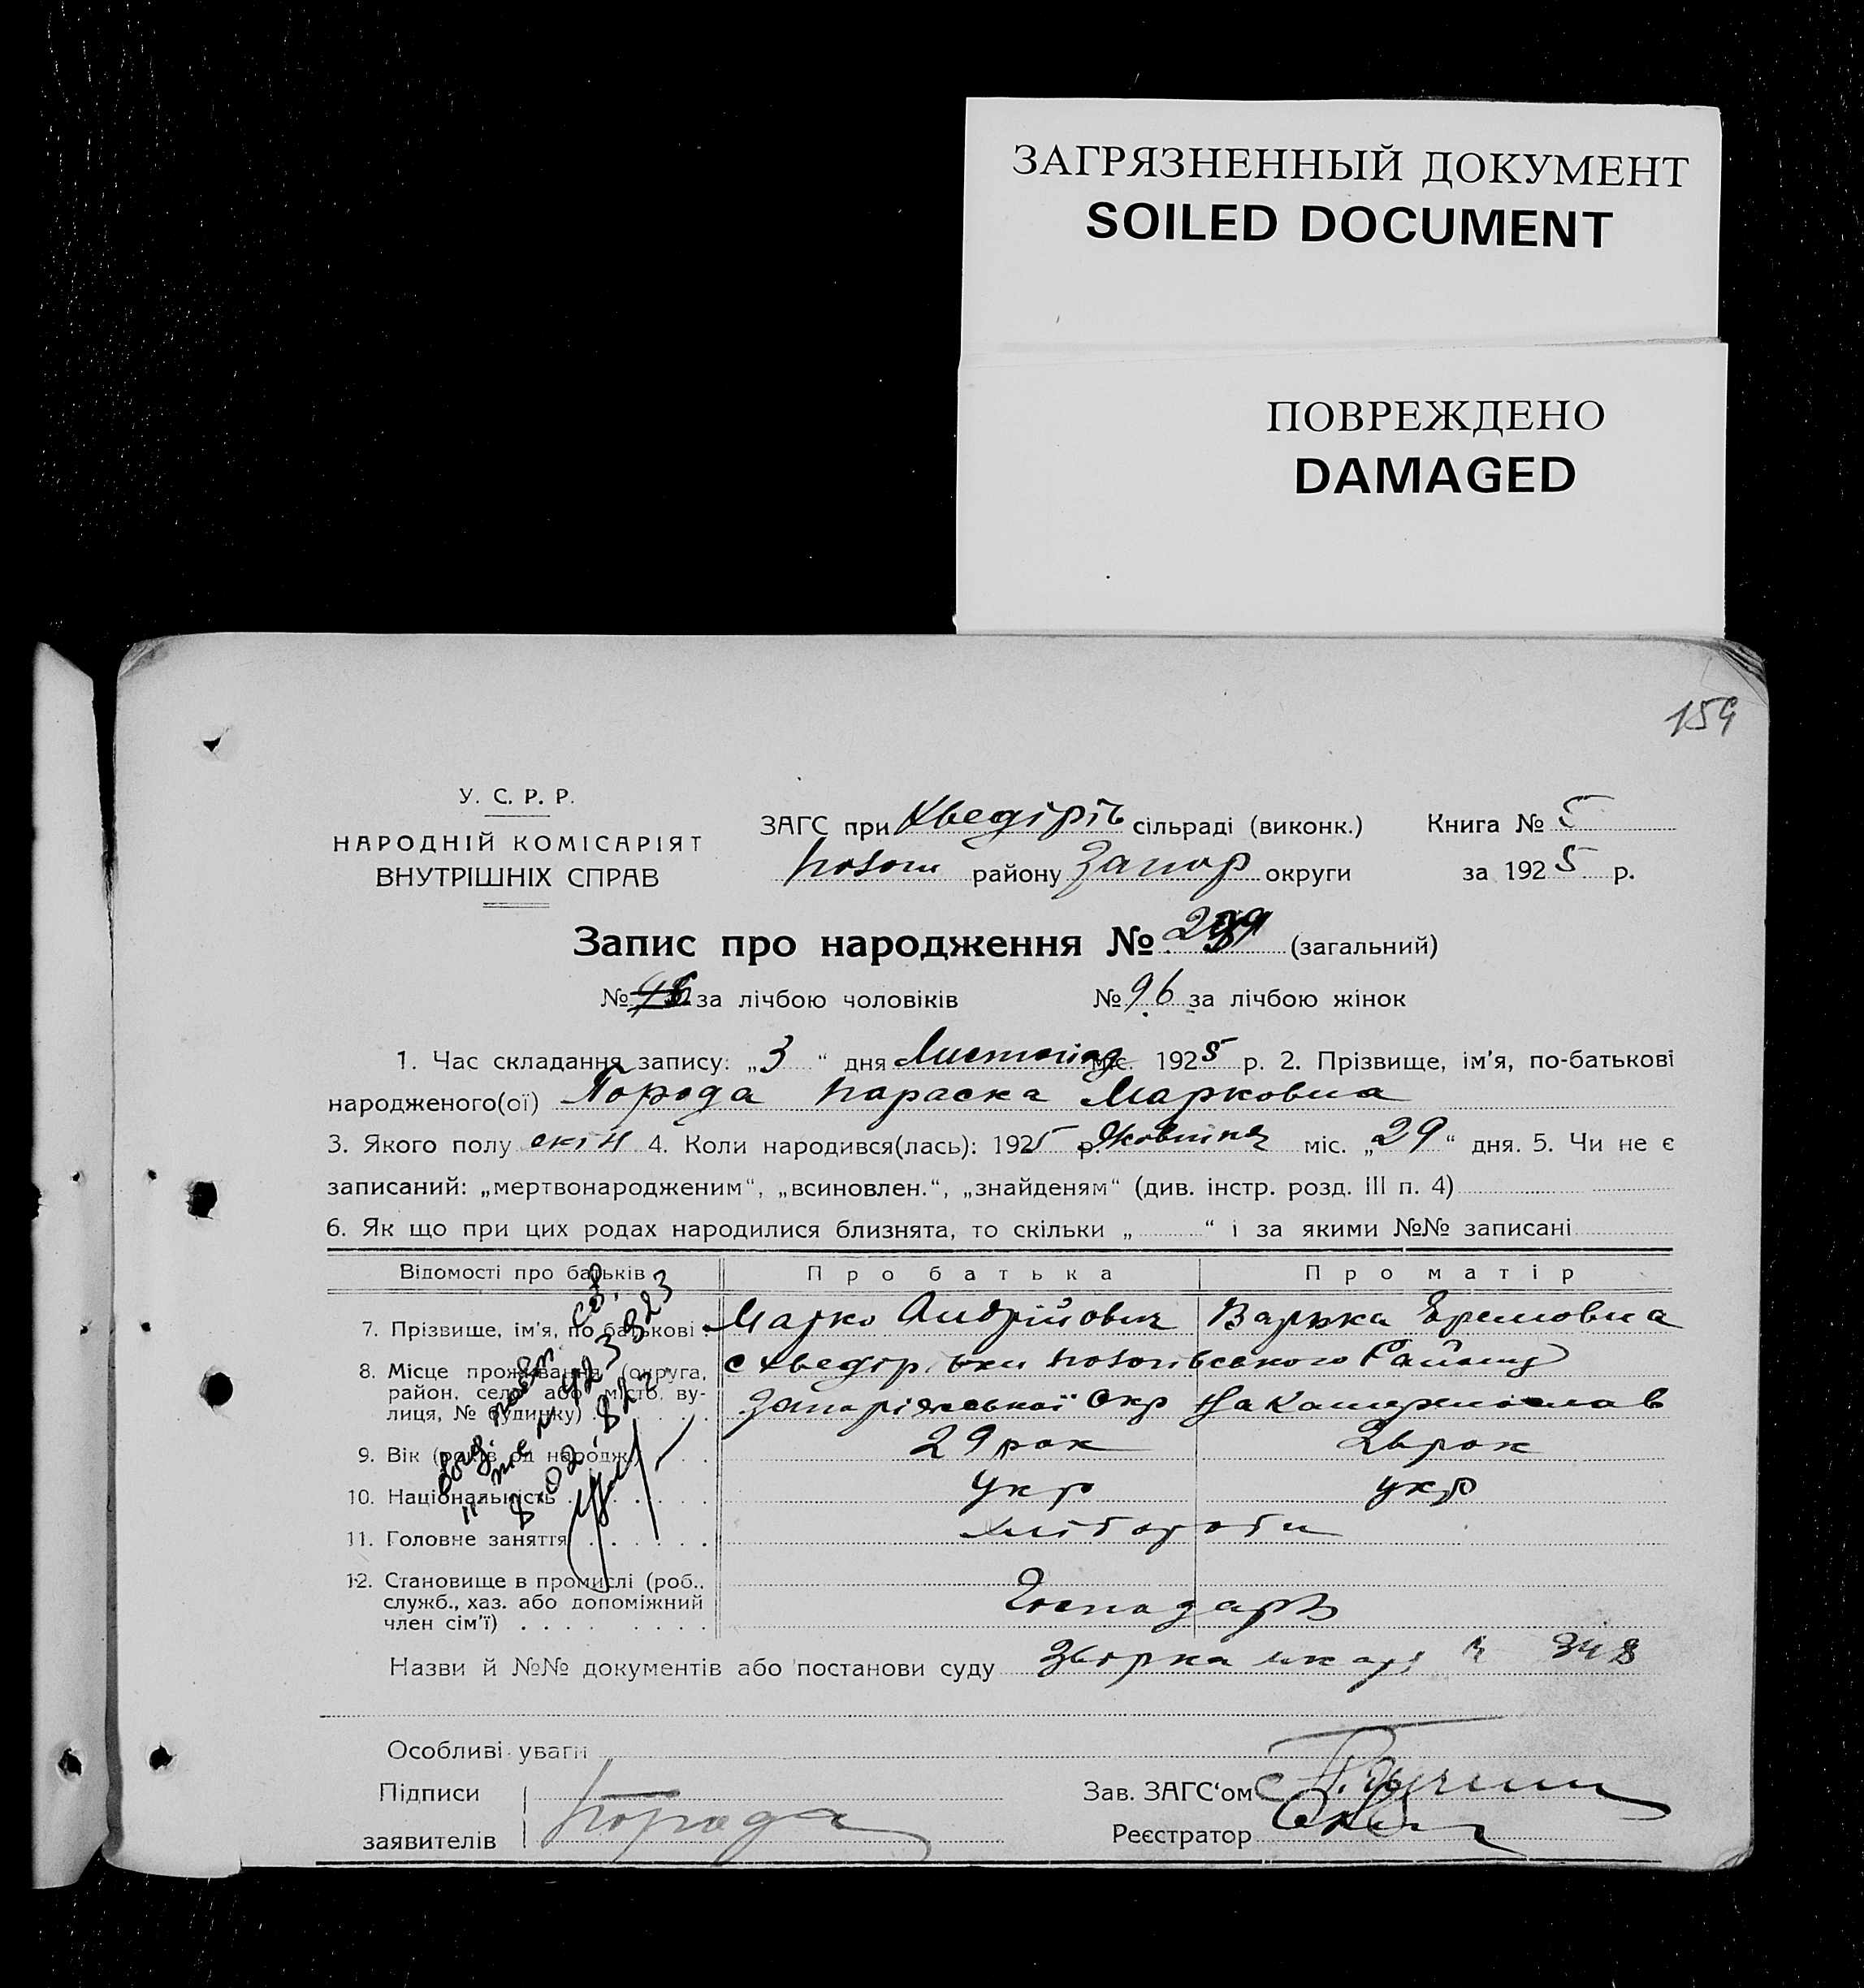 ЗАГРЯЗНЕННЫЙ ДОКУМЕНТ
SOILED DOCUMENT
ПОВРЕЖДЕНО
DAMAGED
159
У. С. Р. Р.
НАРОДНІЙ КОМІСАРІЯТ
ВНУТРІШНІХ СПРАВ
ЗАГС при Хведірів сільраді (виконк.)
района Запор округи
Книга № 5
за 1925 р.
Запис про народження № (загальний)
№ за лічбою чоловіків № 96 за лічбою жінок
1. Час складання запису: „3" дня Листопад міс. 1925 р. 2. Прізвище, ім'я, по-батькові
народженого(ої) Порода Параска Марковна
3. Якого полу 4. Коли народився(лась): 1925 р. Жовтня міс. „29" дня. 5. Чи не є
записаний: „мертвонародженим", „всиновлен.", „знайденям" (див. інстр. розд. III п. 4)
6. Як що при цих родах народилися близнята, то скільки „ " і за якими №№ записані
Відомості про батьків Про батька Про матір
7. Прізвище, ім'я, по батькові Марко Андрійович Варька Яремовна
8. Місце проживання (округа, район, село або місто, вулиця, № будинку) с Району
Запоріжської Окр на Катеринослав
9. Вік (років од народж.) 29 рок 26 рок
10. Національність укр укр
11. Головне заняття хлібороби
12. Становище в промислі (роб., служб., хаз. або допоміжний член сім'ї) Господарь
Назви й №№ документів або постанови суду 348
Особливі уваги
Підписи
заявителів Порода
Зав. ЗАГС'ом
Реєстратор